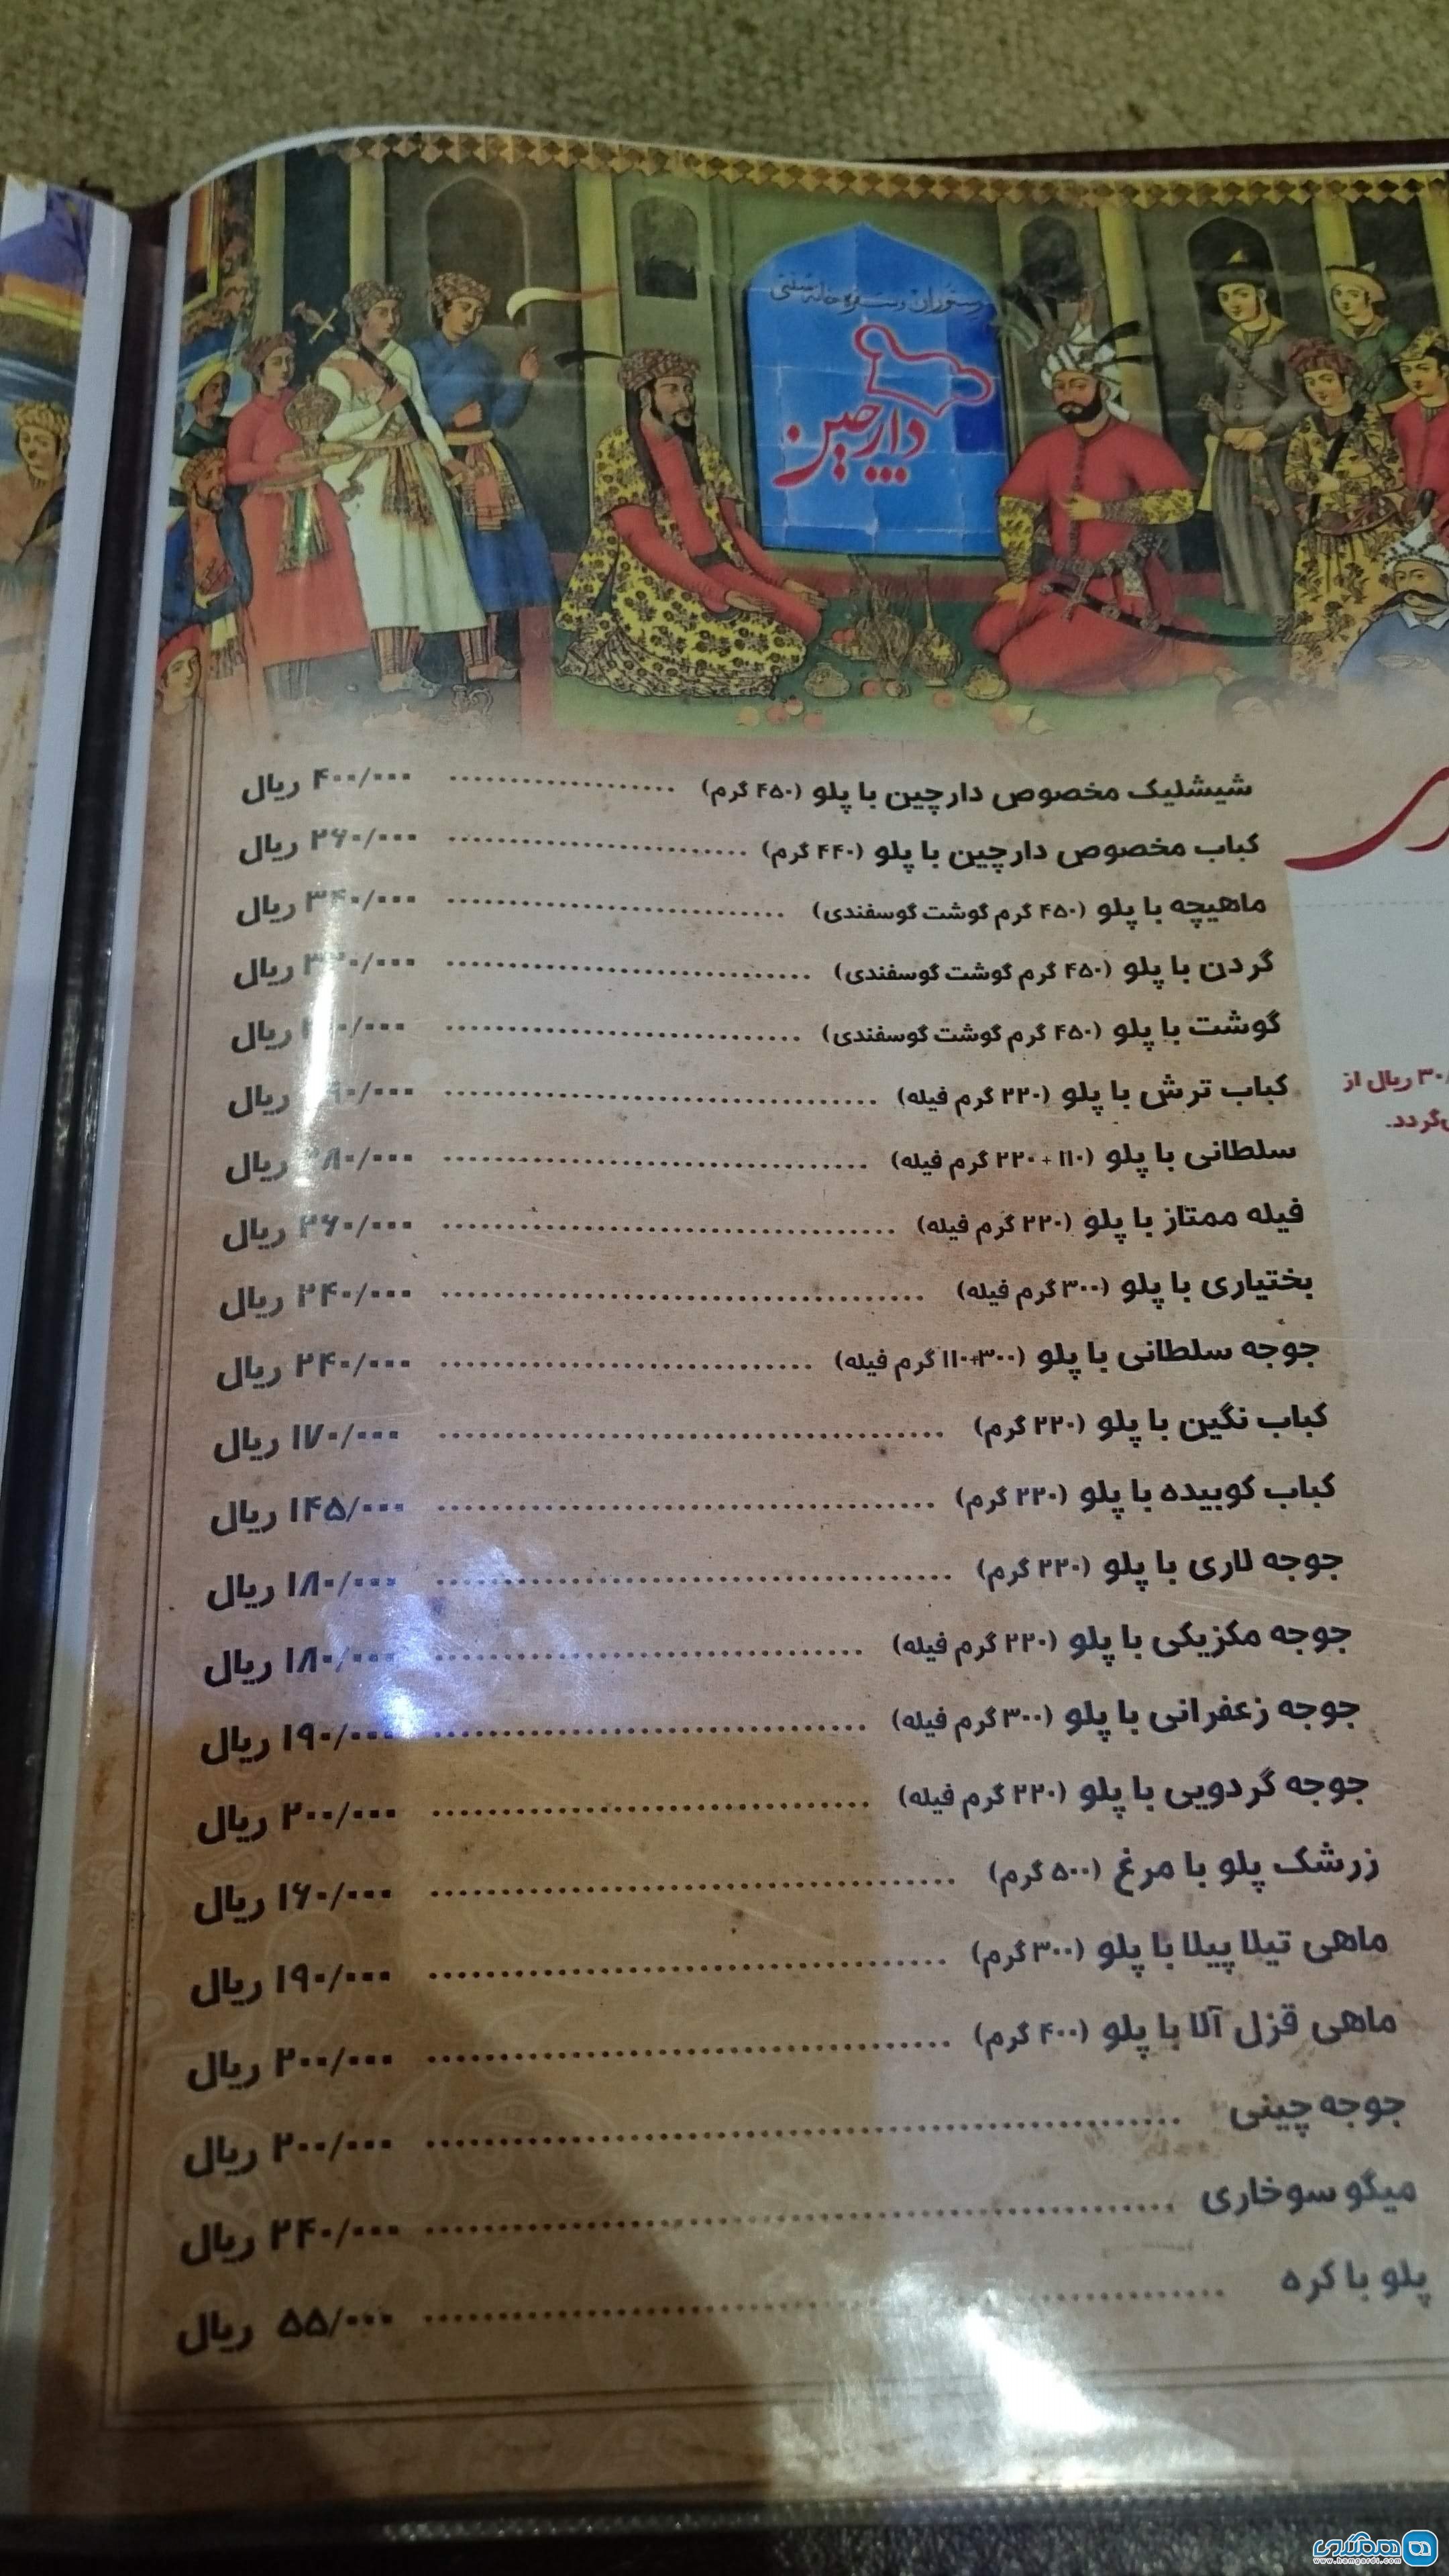 رستوران و سفره خانه سنتی
دارچین
شیشلیک مخصوص دارچین با پلو (۴۵۰ گرم) ۴۰۰/۰۰۰ ریال
کباب مخصوص دارچین با پلو (۴۴۰ گرم) ۲۶۰/۰۰۰ ریال
ماهیچه با پلو (۴۵۰ گرم گوشت گوسفندی) ۳۴۰/۰۰۰ ریال
گردن با پلو (۴۵۰ گرم گوشت گوسفندی) ریال
گوشت با پلو (۴۵۰ گرم گوشت گوسفندی) ریال
کباب ترش با پلو (۲۲۰ گرم فیله) ریال
سلطانی با پلو (۱۱۰ + ۲۲۰ گرم فیله) ۲۸۰/۰۰۰ ریال
فیله ممتاز با پلو (۲۲۰ گرم فیله) ۲۶۰/۰۰۰ ریال
بختیاری با پلو (۳۰۰ گرم فیله) ۲۴۰/۰۰۰ ریال
جوجه سلطانی با پلو (۳۰۰+۱۱۰ گرم فیله) ۲۴۰/۰۰۰ ریال
کباب نگین با پلو (۲۲۰ گرم) ۱۷۰/۰۰۰ ریال
کباب کوبیده با پلو (۲۲۰ گرم) ۱۴۵/۰۰۰ ریال
جوجه لاری با پلو (۲۲۰ گرم) ۱۸۰/۰۰۰ ریال
جوجه مکزیکی با پلو (۲۲۰ گرم فیله) ۱۸۰/۰۰۰ ریال
جوجه زعفرانی با پلو (۳۰۰ گرم فیله) ۱۹۰/۰۰۰ ریال
جوجه گردویی با پلو (۲۲۰ گرم فیله) ۲۰۰/۰۰۰ ریال
زرشک پلو با مرغ (۵۰۰ گرم) ۱۶۰/۰۰۰ ریال
ماهی تیلا پیلا با پلو (۳۰۰ گرم) ۱۹۰/۰۰۰ ریال
ماهی قزل آلا با پلو (۴۰۰ گرم) ۲۰۰/۰۰۰ ریال
جوجه چینی ۲۰۰/۰۰۰ ریال
میگو سوخاری ۲۴۰/۰۰۰ ریال
پلو با کره ۵۵/۰۰۰ ریال
ریال از
همگردی
www.hamgardi.com